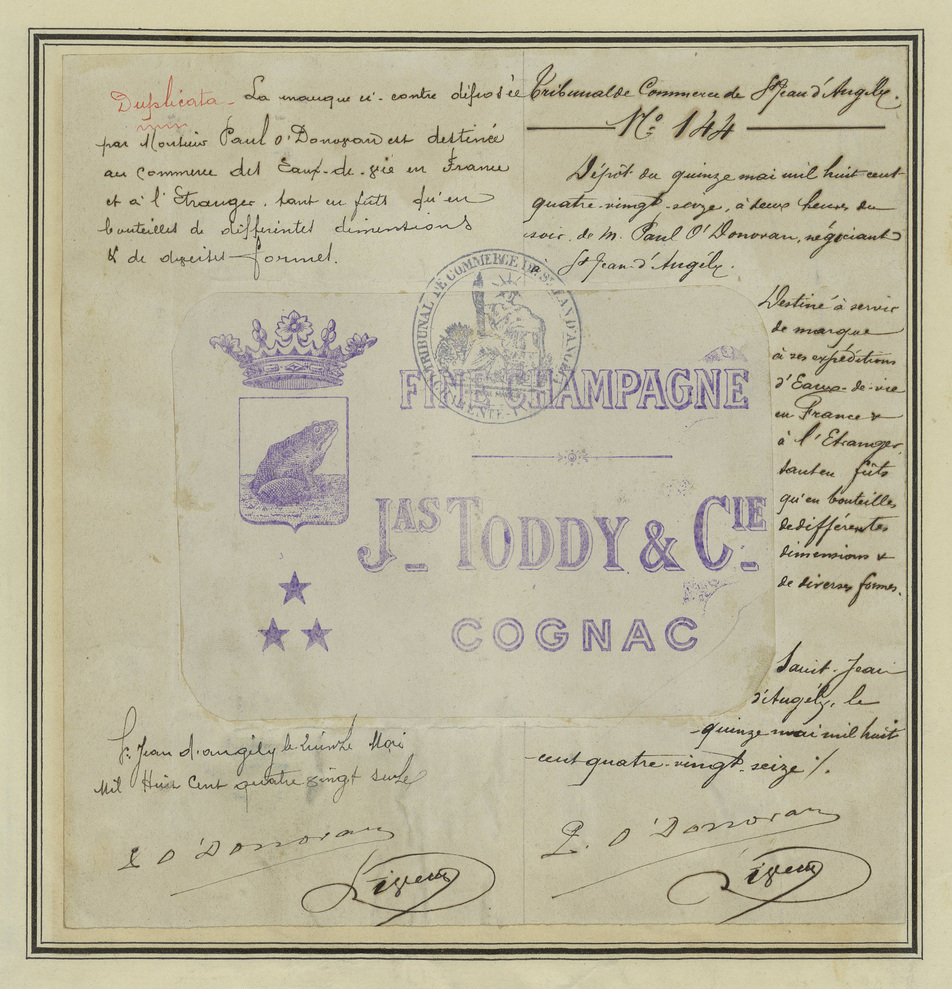 Duplicata - La marque ci-contre déposée
par Monsieur Paul O'Donovan est destinée
au commerce des Eaux-de-vie en France
et à l'Etranger, tant en fûts qu'en
bouteilles de differentes dimensions
& de diverses formes.
Tribunal de Commerce de St Jean d'Angély.
No 144
Dépôt du quinze mai mil huit cent
quatre-vingt-seize, à deux heures du
soir, de M. Paul O'Donovan, négociant
St Jean d'Angély.
TRIBUNAL DE COMMERCE DE ST JEAN D'ANGELY
FINE CHAMPAGNE
JAS TODDY & CIE
COGNAC
Destiné à servir
de marque
à ses expéditions
d'Eaux-de-vie
en France &
à l'Etranger,
tant en fûts
qu'en bouteilles
de différentes
dimensions &
de diverses formes.
Saint-Jean
d'Angély, le
quinze mai mil huit
cent quatre-vingt-seize %.
St Jean d'angély le Quinze Mai
Mil Huit Cent quatre vingt seize
P. O'Donovan
P. O'Donovan